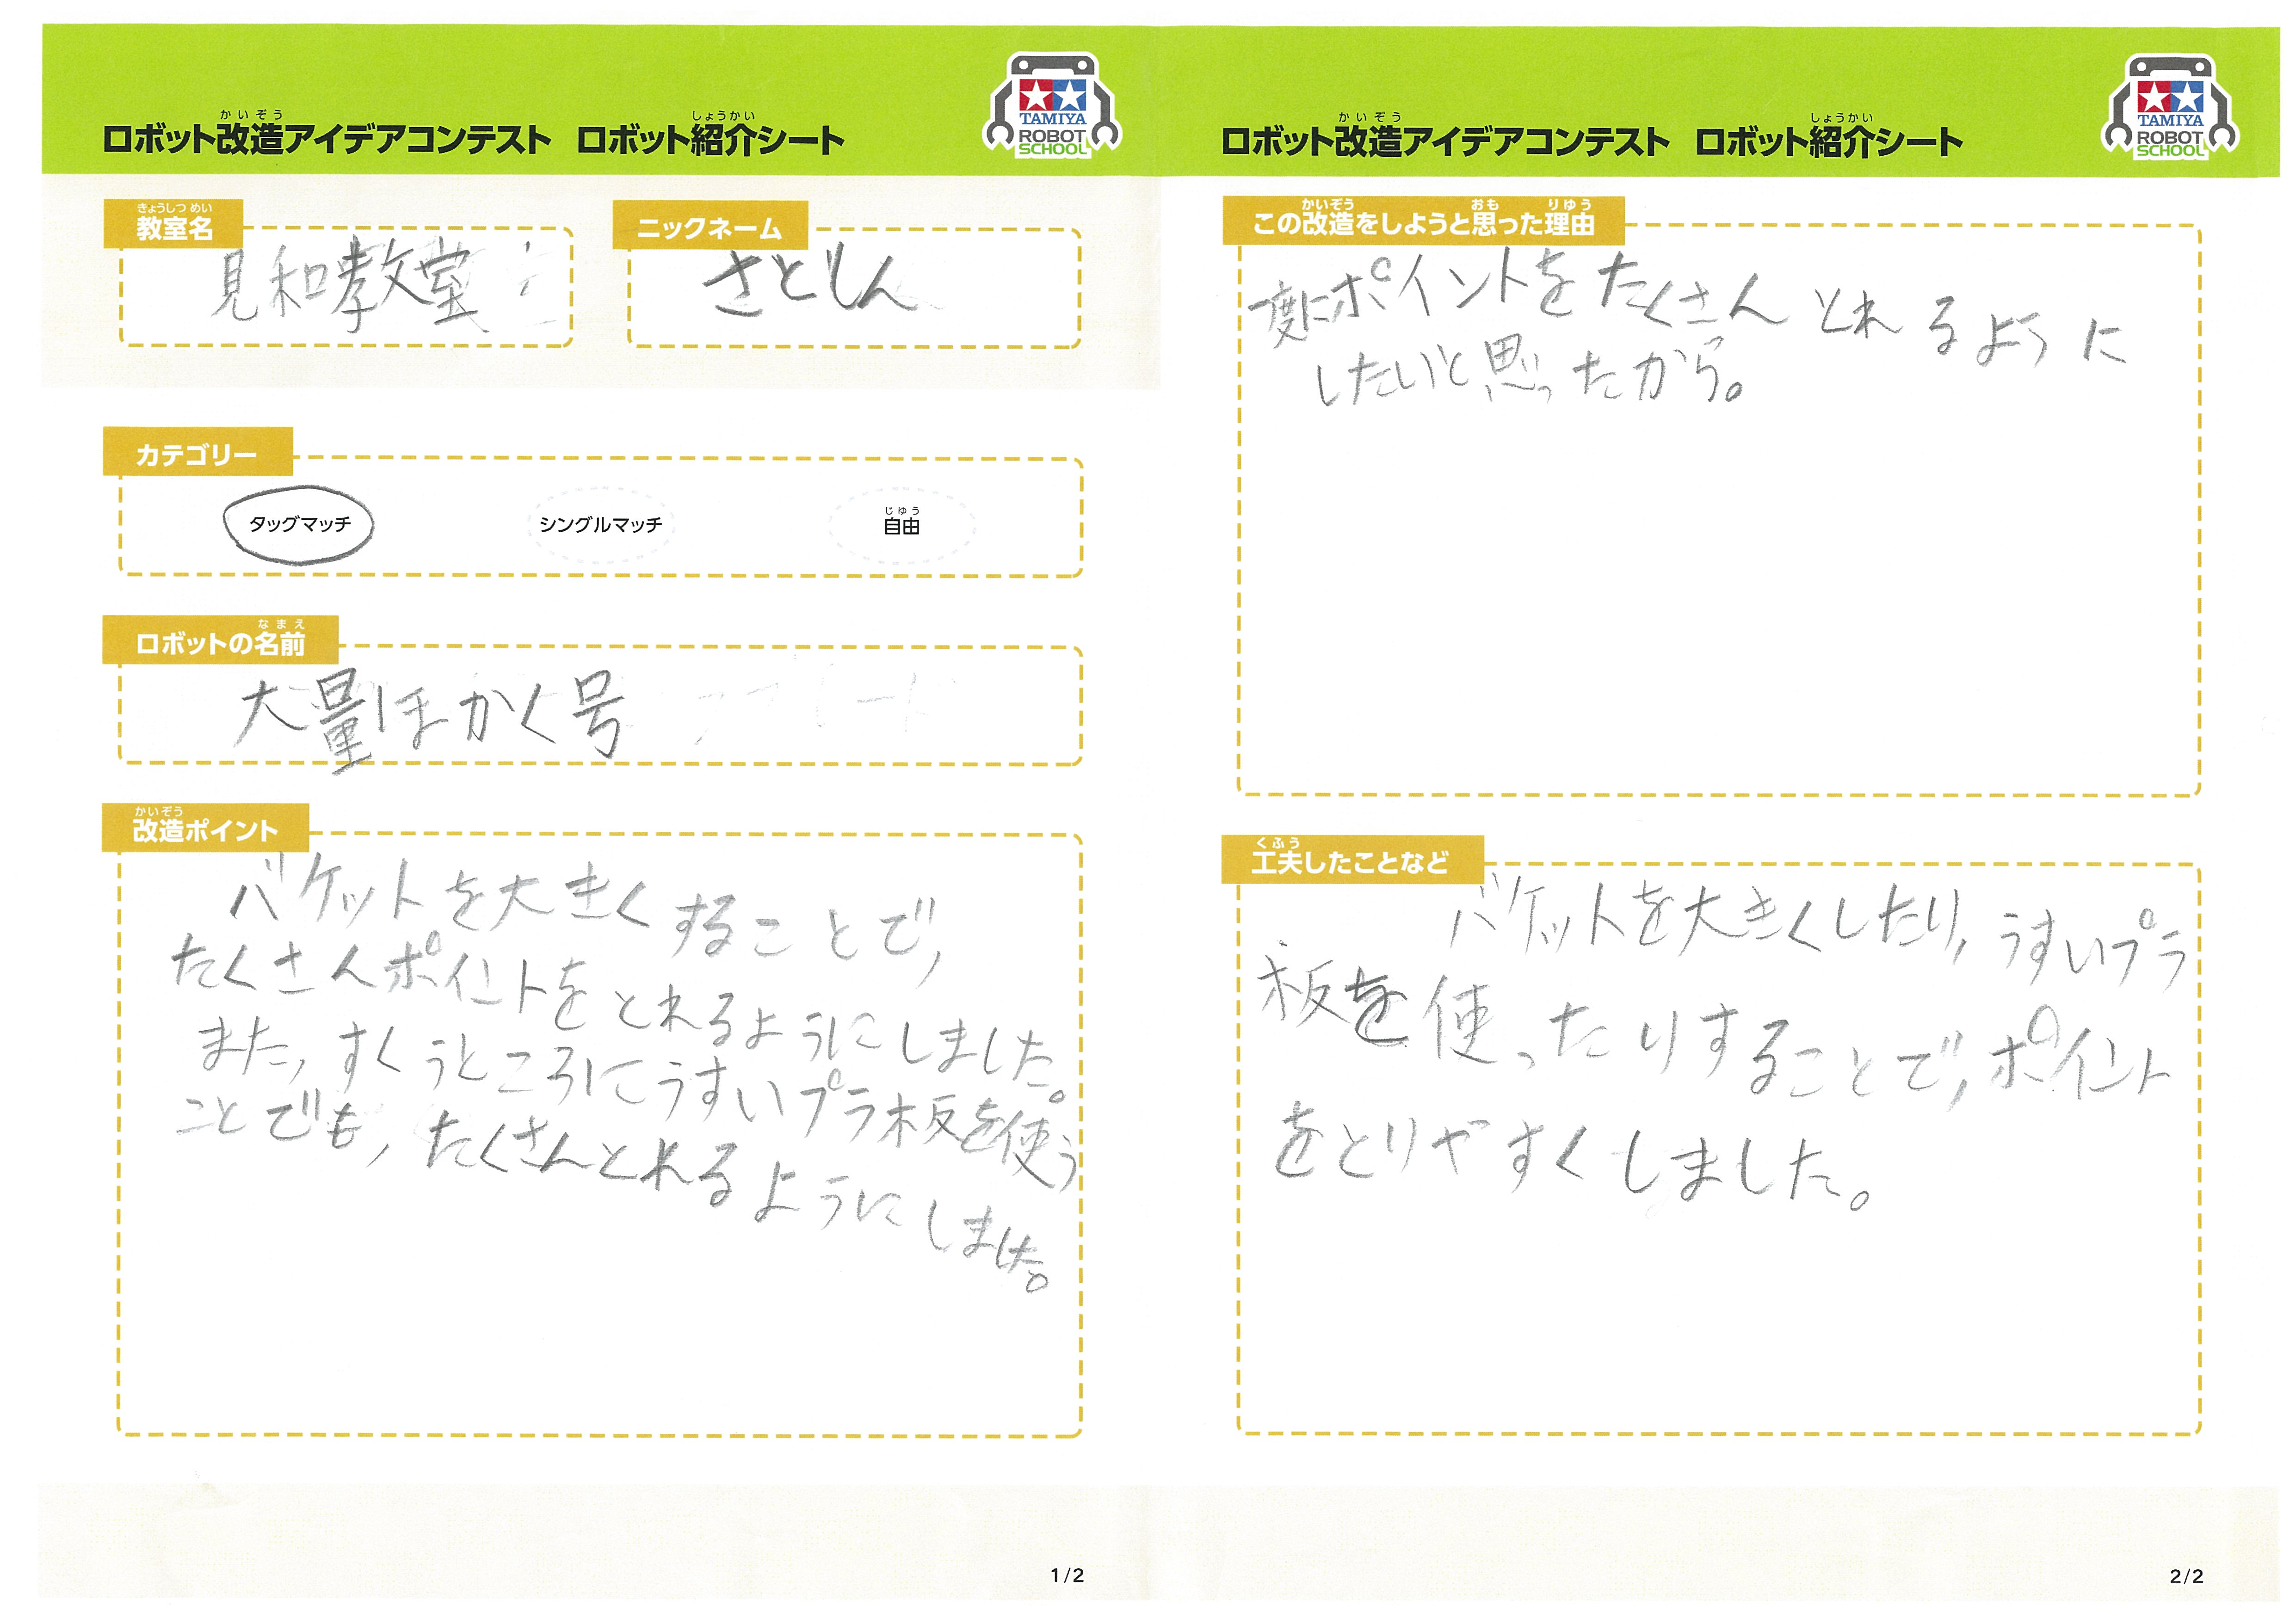 かいぞう しょうかい
ロボット改造アイデアコンテスト ロボット紹介シート
TAMIYA
ROBOT
SCHOOL
きょうしつ めい
教室名
見和教室
ニックネーム
さとしん
カテゴリー
タッグマッチ
シングルマッチ
じゆう
自由
なまえ
ロボットの名前
大量ほかく号
かいぞう
改造ポイント
バケットを大きくすることで,
たくさんポイントをとれるようにしました。
また,すくうところにうすいプラ板を使う
ことでも,たくさんとれるようにしました。
1/2
かいぞう しょうかい
ロボット改造アイデアコンテスト ロボット紹介シート
TAMIYA
ROBOT
SCHOOL
かいぞう おも りゆう
この改造をしようと思った理由
度にポイントをたくさんとれるように
したいと思ったから。
くふう
工夫したことなど
バケットを大きくしたり,うすいプラ
板を使ったりすることで,ポイント
をとりやすくしました。
2/2